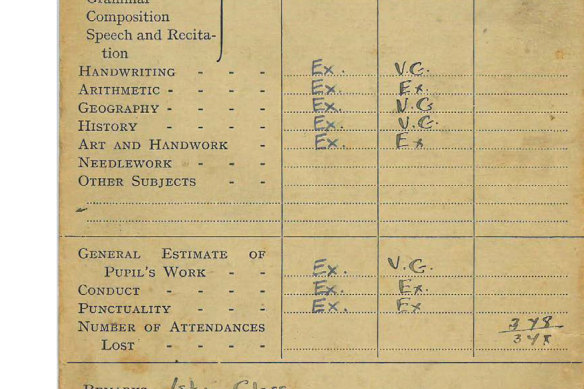 Composition
Speech and Recita-
tion
HANDWRITING - - - Ex. V.G.
ARITHMETIC - - - Ex. Ex.
GEOGRAPHY - - - Ex. V.G
HISTORY - - - Ex. V.G.
ART AND HANDWORK - Ex. Ex
NEEDLEWORK - - -
OTHER SUBJECTS - -
GENERAL ESTIMATE OF
PUPIL'S WORK - - Ex. V.G.
CONDUCT - - - Ex. Ex.
PUNCTUALITY - - - Ex. Ex
NUMBER OF ATTENDANCES 348
LOST - - - 348